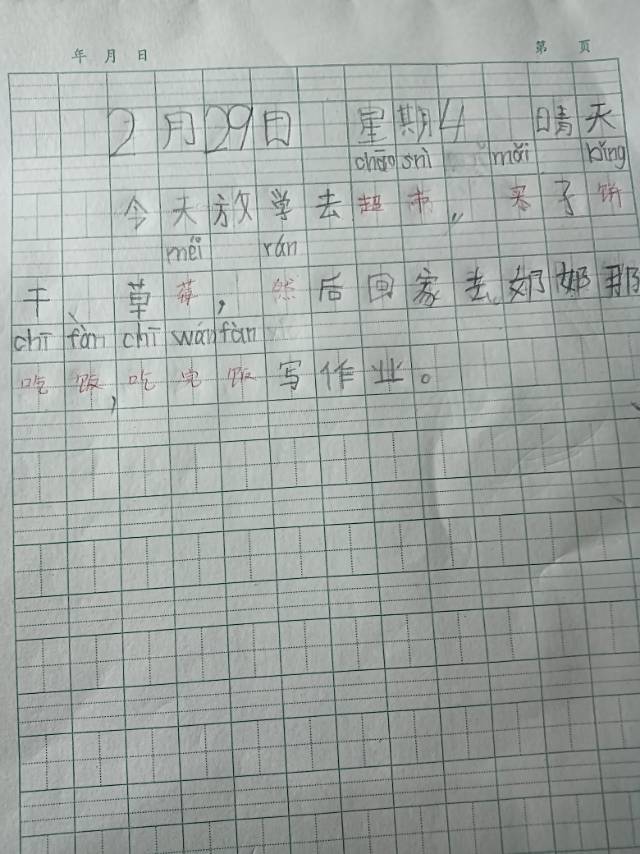 年 月 日 第 页
2月29日 星期4 晴天
chāo shì mǎi bǐng
今天放学去超市,,买了饼
méi rán
干、草莓,然后回家去奶奶那
chī fàn chī wán fàn
吃饭,吃完饭写作业。